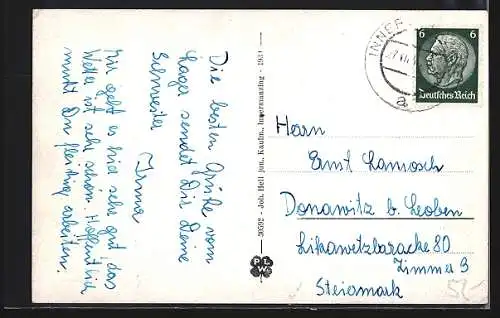 Die besten Grüße vom
Lager sendet Dir Deine
Schwester
Irma
Mir geht es hier sehr gut, das
Wetter ist sehr schön. Hoffentlich
mußt Du fleißig arbeiten.
30592 - Joh. Heil jun. Kaufm., Innermanzing - 1931
P L W
INNER
a
6 6
Deutsches Reich
Herrn
Ernst Lamosch
Donawitz b. Leoben
Likawetzbaracke 80
Zimmer 9
Steiermark